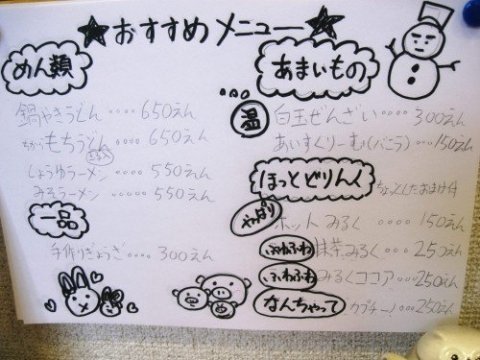 ★おすすめメニュー★
めん類
鍋やきうどん‥‥650えん
ちからもちうどん‥‥650えん
しょうゆラーメン‥‥550えん
みそラーメン‥‥‥550えん
一品
手作りぎょうざ‥‥300えん
あまいもの
温 白玉ぜんざい‥‥300えん
あいすくりーむ(バニラ)‥150えん
ほっとどりんく
ちょっとしたおまけ付
やっぱり ホットみるく‥‥150えん
ふわふわ 抹茶みるく‥‥250えん
ふわふわ みるくココア‥250えん
なんちゃって カプチーノ‥250えん